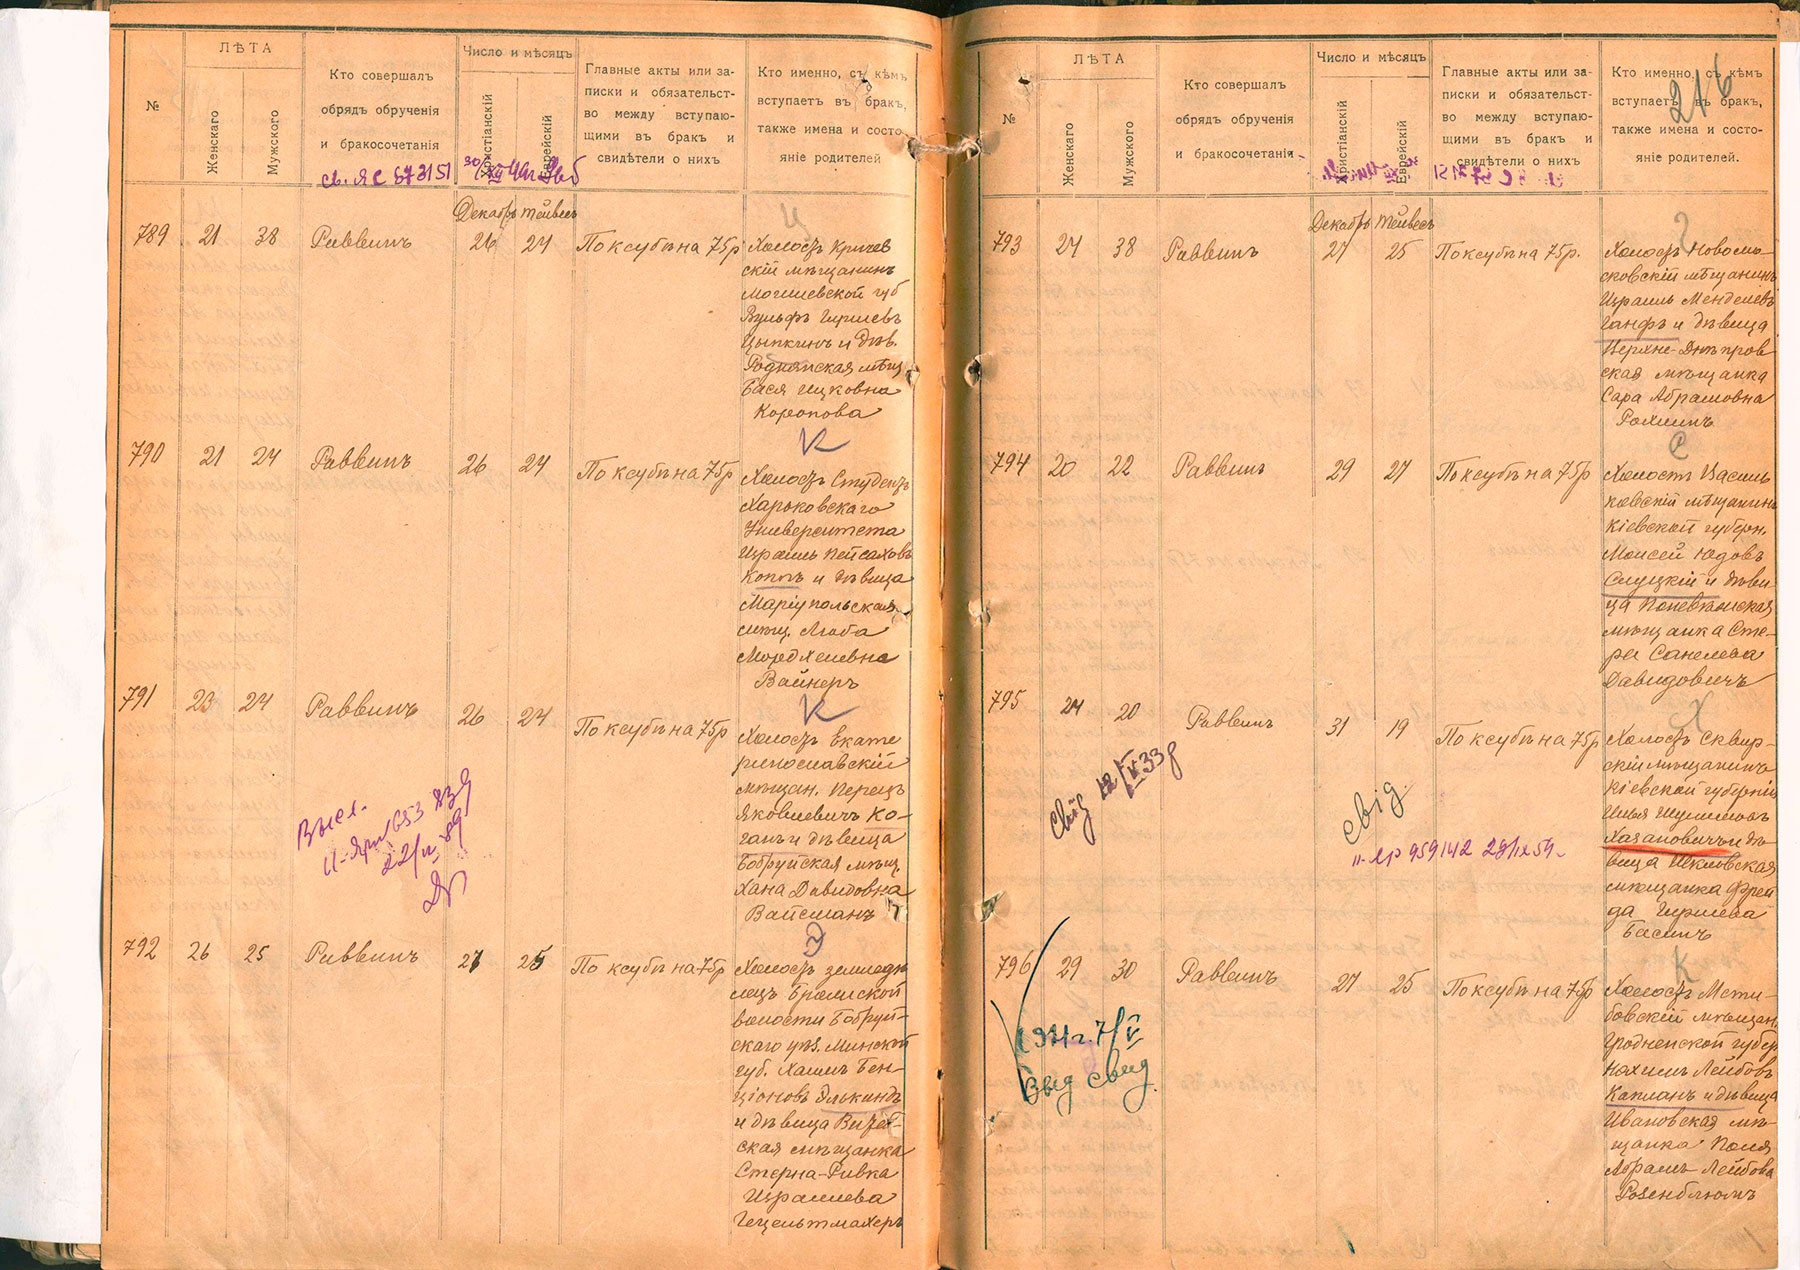 №
ЛѢТА
Женскаго
Мужского
Кто совершалъ
обрядъ обрученія
и бракосочетанія
Число и мѣсяцъ
Христіанскій
Еврейскій
Главные акты или за-
писки и обязательст-
во между вступаю-
щими въ бракъ и
свидѣтели о нихъ
Кто именно, съ кѣмъ
вступаетъ въ бракъ,
также имена и состо-
яніе родителей
Декабрь Тейвесъ
789 21 38 Раввинъ 26 24 По ксубѣ на 75 р
Холостъ Кричев
скій мѣщанинъ
Могилевской губ
Вульфъ Гиршевъ
Цыпкинъ и дѣв.
Роднянская мѣщ.
Бася Ицковна
Коропова
К
790 21 24 Раввинъ 26 24 По ксубѣ на 75 р
Холостъ Студентъ
Харьковскаго
Университета
Израиль Пейсаховъ
Коппъ и дѣвица
Маріупольская
мѣщ. Люба
Мордхелевна
Вайнеръ
К
791 23 24 Раввинъ 26 24 По ксубѣ на 75 р
Холостъ Екате
ринославскій
мѣщан. Перецъ
Яковлевичъ Ко-
ганъ и дѣвица
Бобруйская мѣщ.
Хана Давидовна
Вайсманъ
Э
792 26 25 Раввинъ 27 25 По ксубѣ на 75 р
Холостъ земледѣ
лецъ
волости Бобруй-
скаго уѣз. Минской
губ. Хаимъ Бен-
ціоновъ Элькиндъ
и дѣвица Витеб-
ская мѣщанка
Стерна-Ривка
Израилева
Гецельтмахеръ
216
№
ЛѢТА
Женскаго
Мужского
Кто совершалъ
обрядъ обрученія
и бракосочетанія
Число и мѣсяцъ
Христіанскій
Еврейскій
Главные акты или за-
писки и обязательст-
во между вступаю-
щими въ бракъ и
свидѣтели о нихъ
Кто именно, съ кѣмъ
вступаетъ въ бракъ,
также имена и состо-
яніе родителей.
Декабрь Тейвесъ
Г
793 24 38 Раввинъ 27 25 По ксубѣ на 75 р.
Холостъ Новомо-
сковскій мѣщанинъ
Израиль Менделевъ
Ганфъ и дѣвица
Верхне-Днѣпров
ская мѣщанка
Сара Абрамовна
Рохлинъ
С
794 20 22 Раввинъ 29 27 По ксубѣ на 75 р
Холостъ Василь
ковскій мѣщанинъ
Кіевской губерн.
Моисей Юдовъ
Слуцкій и дѣви-
ца Поневѣжская
мѣщанка Сте-
ра
Давидовичъ
Х
795 24 20 Раввинъ 31 19 По ксубѣ на 75 р
Холостъ Сквир-
скій мѣщанинъ
Кіевской губерніи
Илья Шулимовъ
Хазановичъ и дѣ
вица Шкловская
мѣщанка Фрей
да Гиршева
Басинъ
свід 12/V 33 р
свід
II-ЯР 959142 29/IX 59.
К
796 29 30 Раввинъ 27 25 По ксубѣ на 75 р
Холостъ Мсти-
бовскій мѣщан.
Гродненской губер
Нахимъ Лейбовъ
Капланъ и дѣвица
Ивановская мѣ-
щанка Поля
Абрамъ-Лейбова
Розенблюмъ
7/V
выд свид.